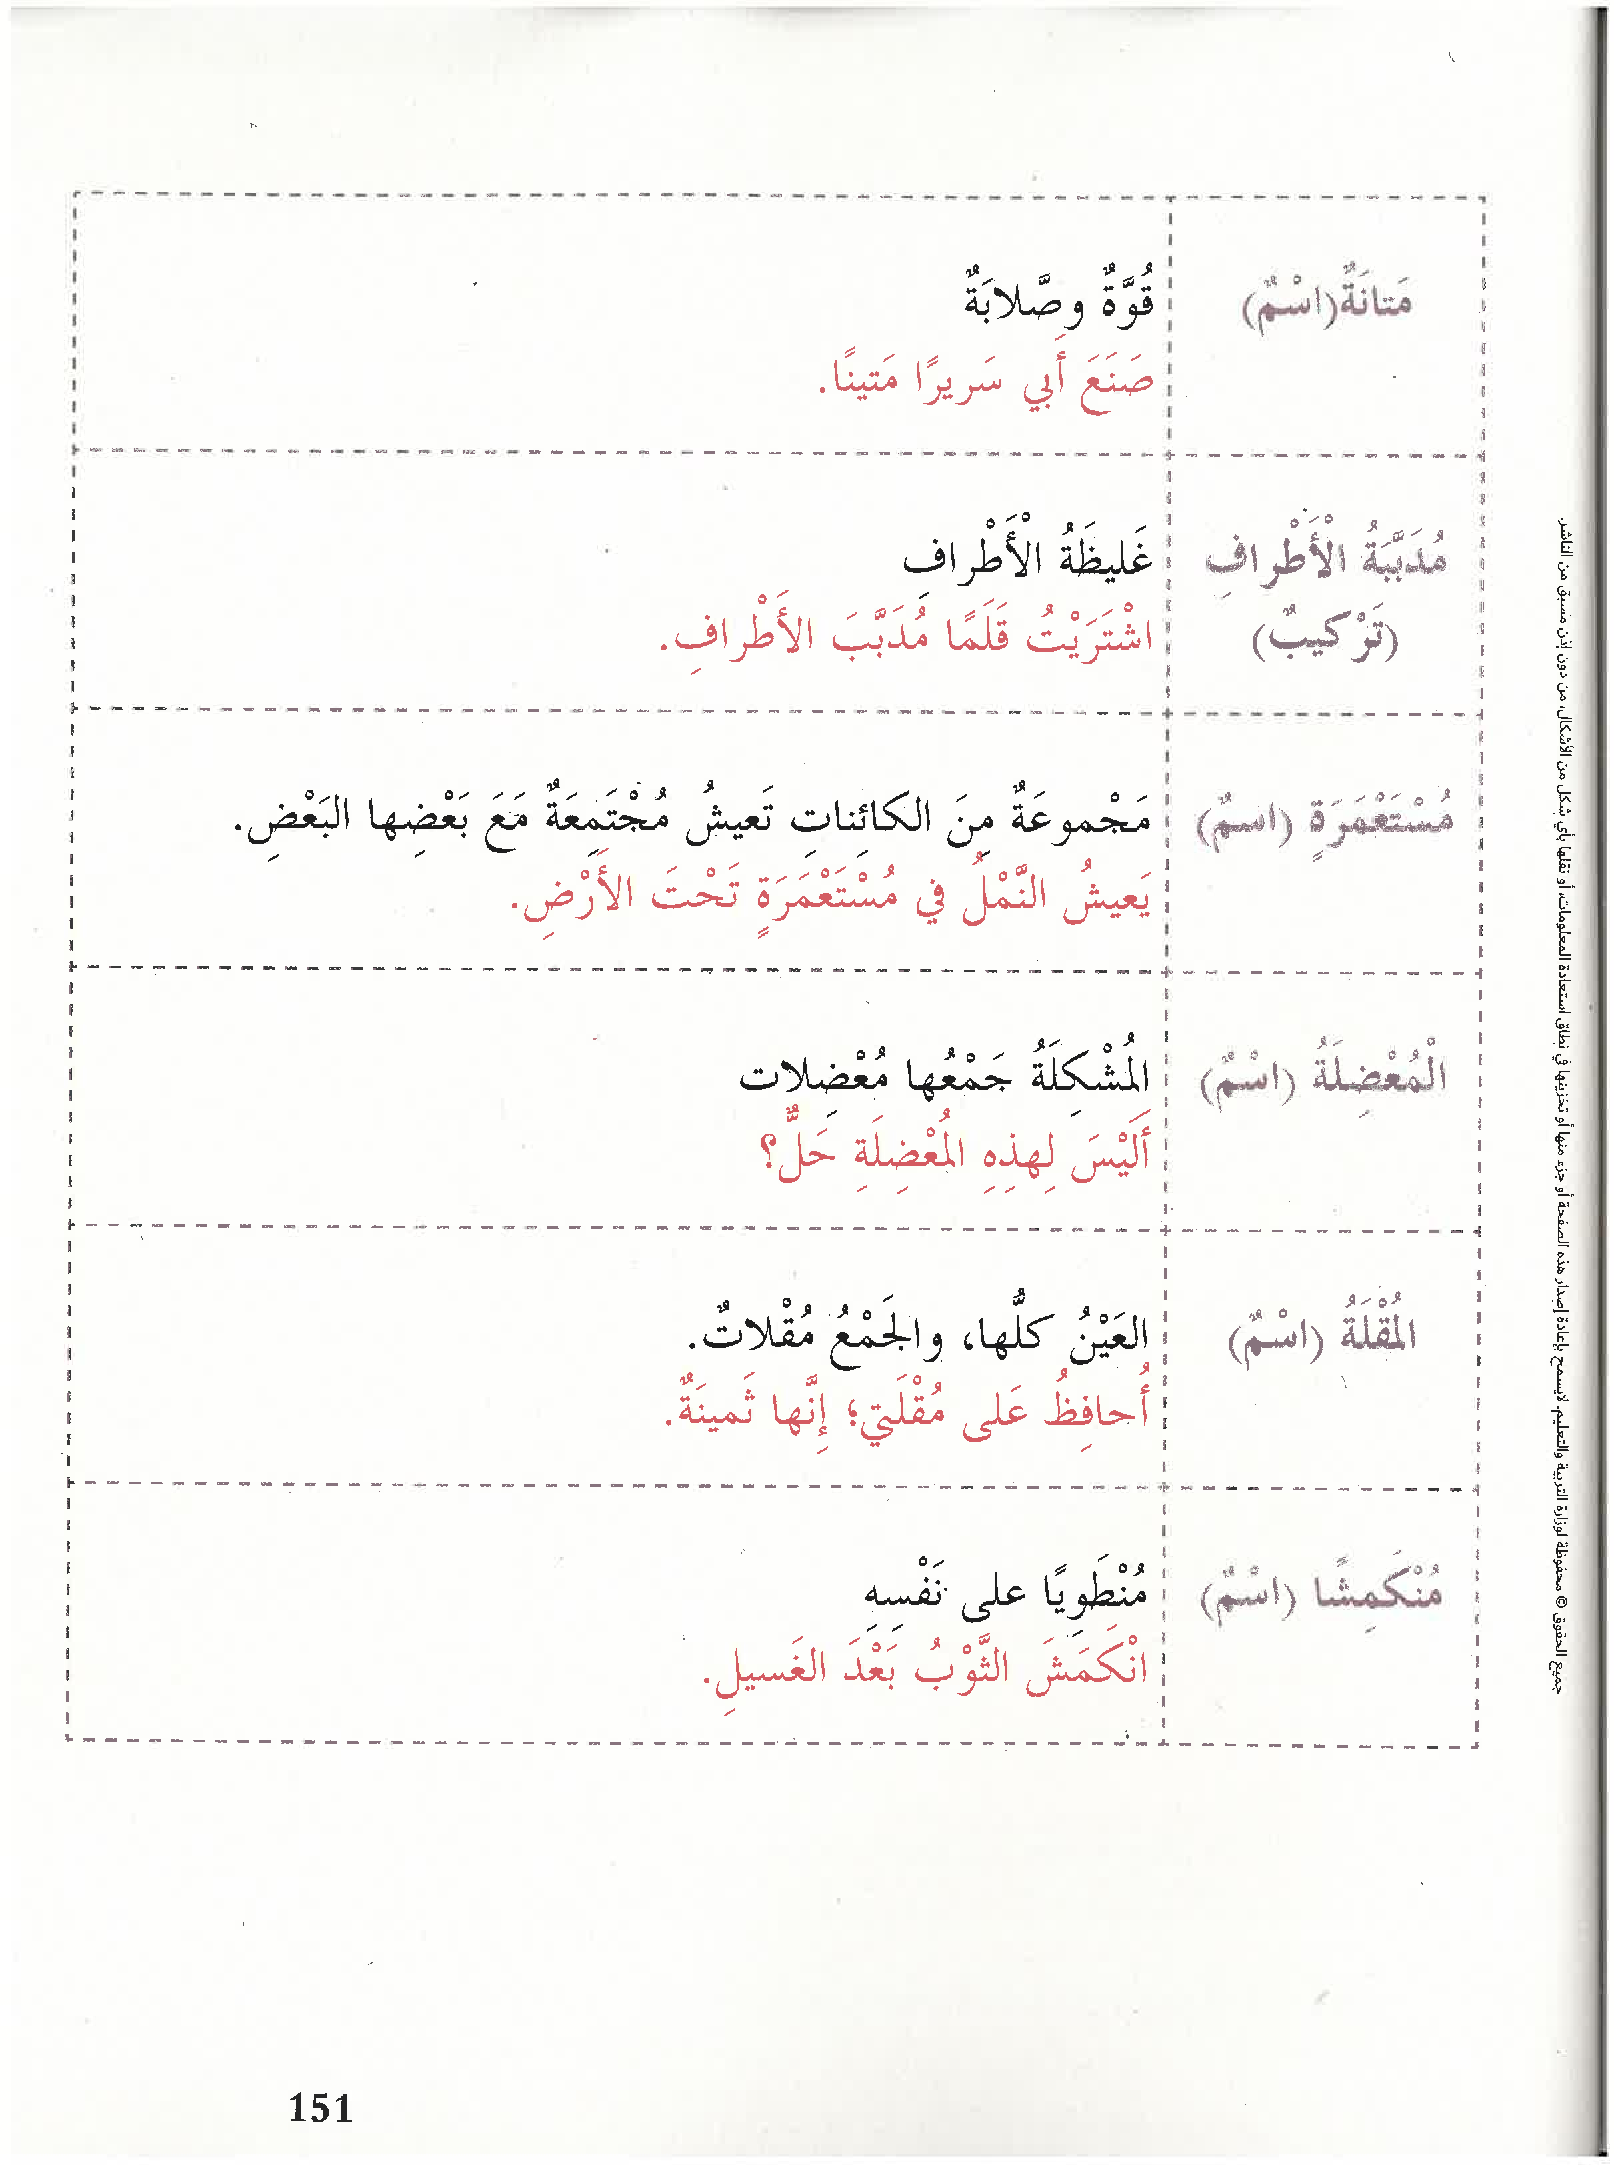 مَتانَةٌ(اسْمٌ)
قُوَّةٌ وصَّلابَةٌ
صَنَعَ أَبي سَريرًا مَتينًا.
مُدَبَّبَةُ الْأَطْرافِ
(تَرْكيبٌ)
غَليظَةُ الْأَطْرافِ
اشْتَرَيْتُ قَلَمًا مُدَبَّبَ الأَطْرافِ.
مُسْتَعْمَرَةٍ (اسمٌ)
مَجْموعَةٌ مِنَ الكائِناتِ تَعيشُ مُجْتَمِعَةٌ مَعَ بَعْضِها البَعْضِ.
يَعيشُ النَّمْلُ في مُسْتَعْمَرَةٍ تَحْتَ الأَرْضِ.
الْمُعْضِلَةُ (اسْمٌ)
المُشْكِلَةُ جَمْعُها مُعْضِلات
أَلَيْسَ لِهذِهِ المُعْضِلَةِ حَلٌّ؟
المُقْلَةُ (اسْمٌ)
العَيْنُ كلُّها، والجَمْعُ مُقْلاتٌ.
أُحافِظُ عَلى مُقْلَتي؛ إِنَّها ثَمينَةٌ.
مُنْكَمِشًا (اسْمٌ)
مُنْطَوِيًا على نَفْسِهِ
انْكَمَشَ الثَّوْبُ بَعْدَ الغَسيلِ.
جميع الحقوق © محفوظة لوزارة التربية والتعليم. لايسمح بإعادة إصدار هذه الصفحة أو جزء منها أو تخزينها في نطاق استعادة المعلومات، أو نقلها بأي شكل من الأشكال، من دون إذن مسبق من الناشر.
151